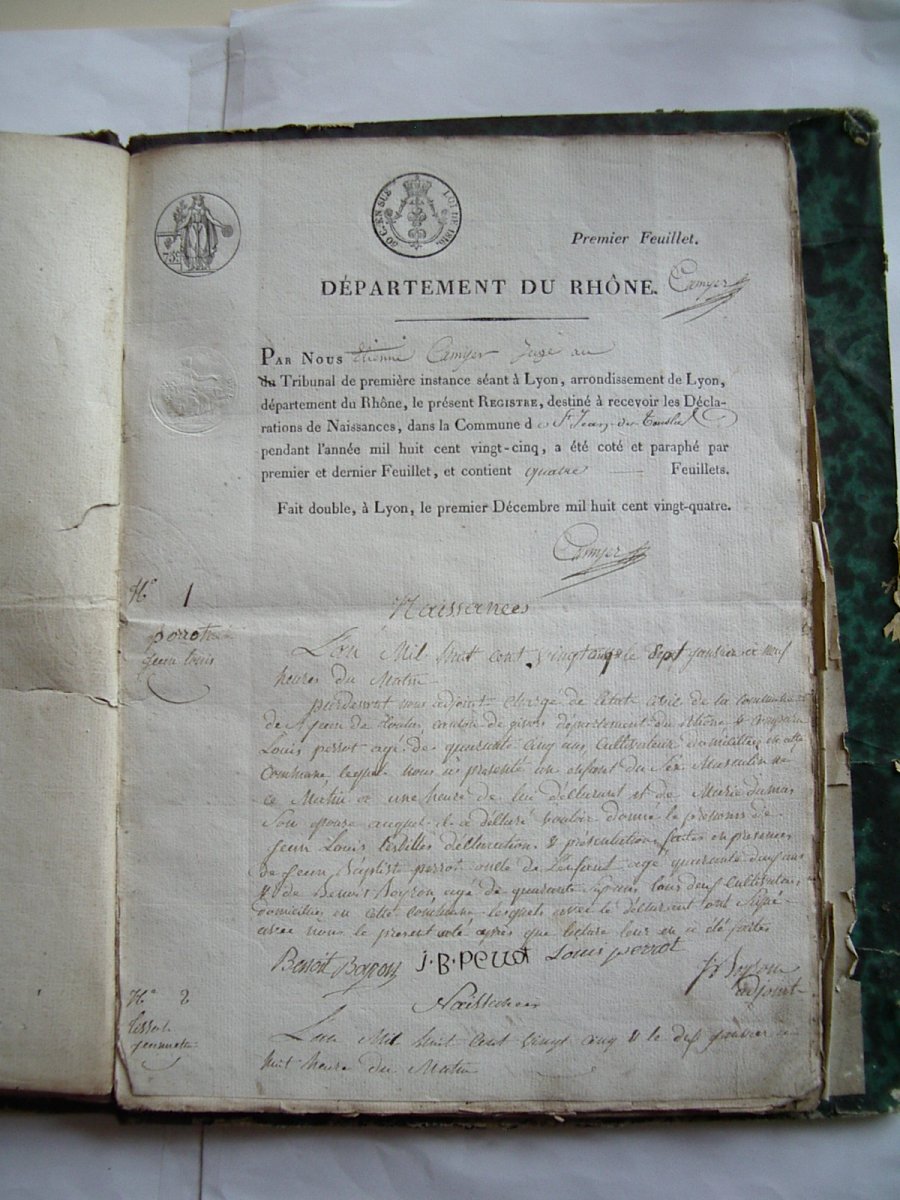 75c
50 C. EN SUS
LOI DE 1816.
Premier Feuillet.
DÉPARTEMENT DU RHÔNE.
Camyer
PAR NOUS Etienne Camyer Juge au
du Tribunal de première instance séant à Lyon, arrondissement de Lyon,
département du Rhône, le présent REGISTRE, destiné à recevoir les Décla-
rations de Naissances, dans la Commune d e St Jean de Toulas
pendant l'année mil huit cent vingt-cinq, a été coté et paraphé par
premier et dernier Feuillet, et contient quatre Feuillets.
Fait double, à Lyon, le premier Décembre mil huit cent vingt-quatre.
Camyer
N° 1
Naissances
jean louis
L'an Mil huit cent vingt cinq le Sept janvier a neuf
heures du Matin
pardevant nous adjoint charge de l'état civil de la commune
de St jean de Toulas, canton de givors département du rhône est comparu
Louis perrot agé de quarante cinq ans cultivateur domicilier en cette
Commune, lequel nous a présenté un enfant du Sex Masculin né
ce Matin a une heure de lui déclarant et de Marie dumas
Son epouse auquel il a déclaré vouloir donné le prenoms de
jean Louis lesdittes déclaration & présentation faites en presence
de jean Baptiste perrot oncle de l'enfant agé quarante ans
& de Benoit Boyron, agé de quarante ans tous deux Cultivateurs
domiciliés en cette commune lesquels avec le déclarant ont signé
avec nous le present acte après que lecture leur en a été faites
Benoit Boyron J.B. Perrot Louis perrot
adjoint
N° 2
Naissances
jeannette
L'an Mil huit Cent vingt cinq & le dix janvier a
huit heure du Matin